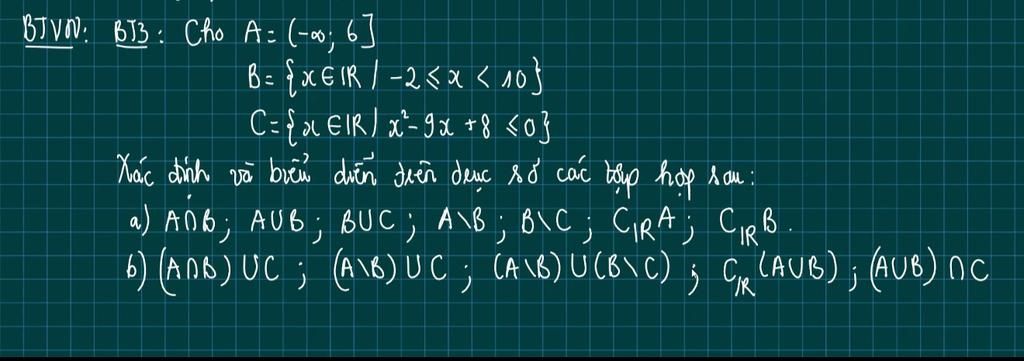 BTVN: BT3: Cho A = (-∞; 6]
B = {x ∈ IR / -2 ≤ x < 10}
C = {x ∈ IR / x² - 9x + 8 ≤ 0}
Xác định và biểu diễn trên trục số các tập hợp sau:
a) A∩B; A∪B; B∪C; A\B; B\C; C_IR A; C_IR B.
b) (A∩B) ∪ C; (A\B) ∪ C; (A\B) ∪ (B\C); C_IR (A∪B); (A∪B) ∩ C